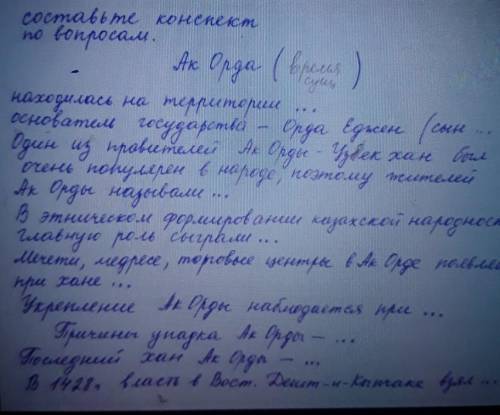 составьте конспект
по вопросам.
Ак Орда (время
сущ)
находилась на территории ...
основатель государства – Орда Еджен (сын ...
Один из правителей Ак Орды - Узбек хан был
очень популярен в народе, поэтому жителей
Ак Орды называли ...
В этническом формировании казахской народност
главную роль сыграли ...
Мечети, медресе, торговые центры в Ак Орде появля
при хане ...
Укрепление Ак Орды наблюдается при ...
Причины упадка Ак Орды – ...
Последний хан Ак Орды – ...
В 1428г власть в Вост. Дешт-и-Кыпчаке взял ...